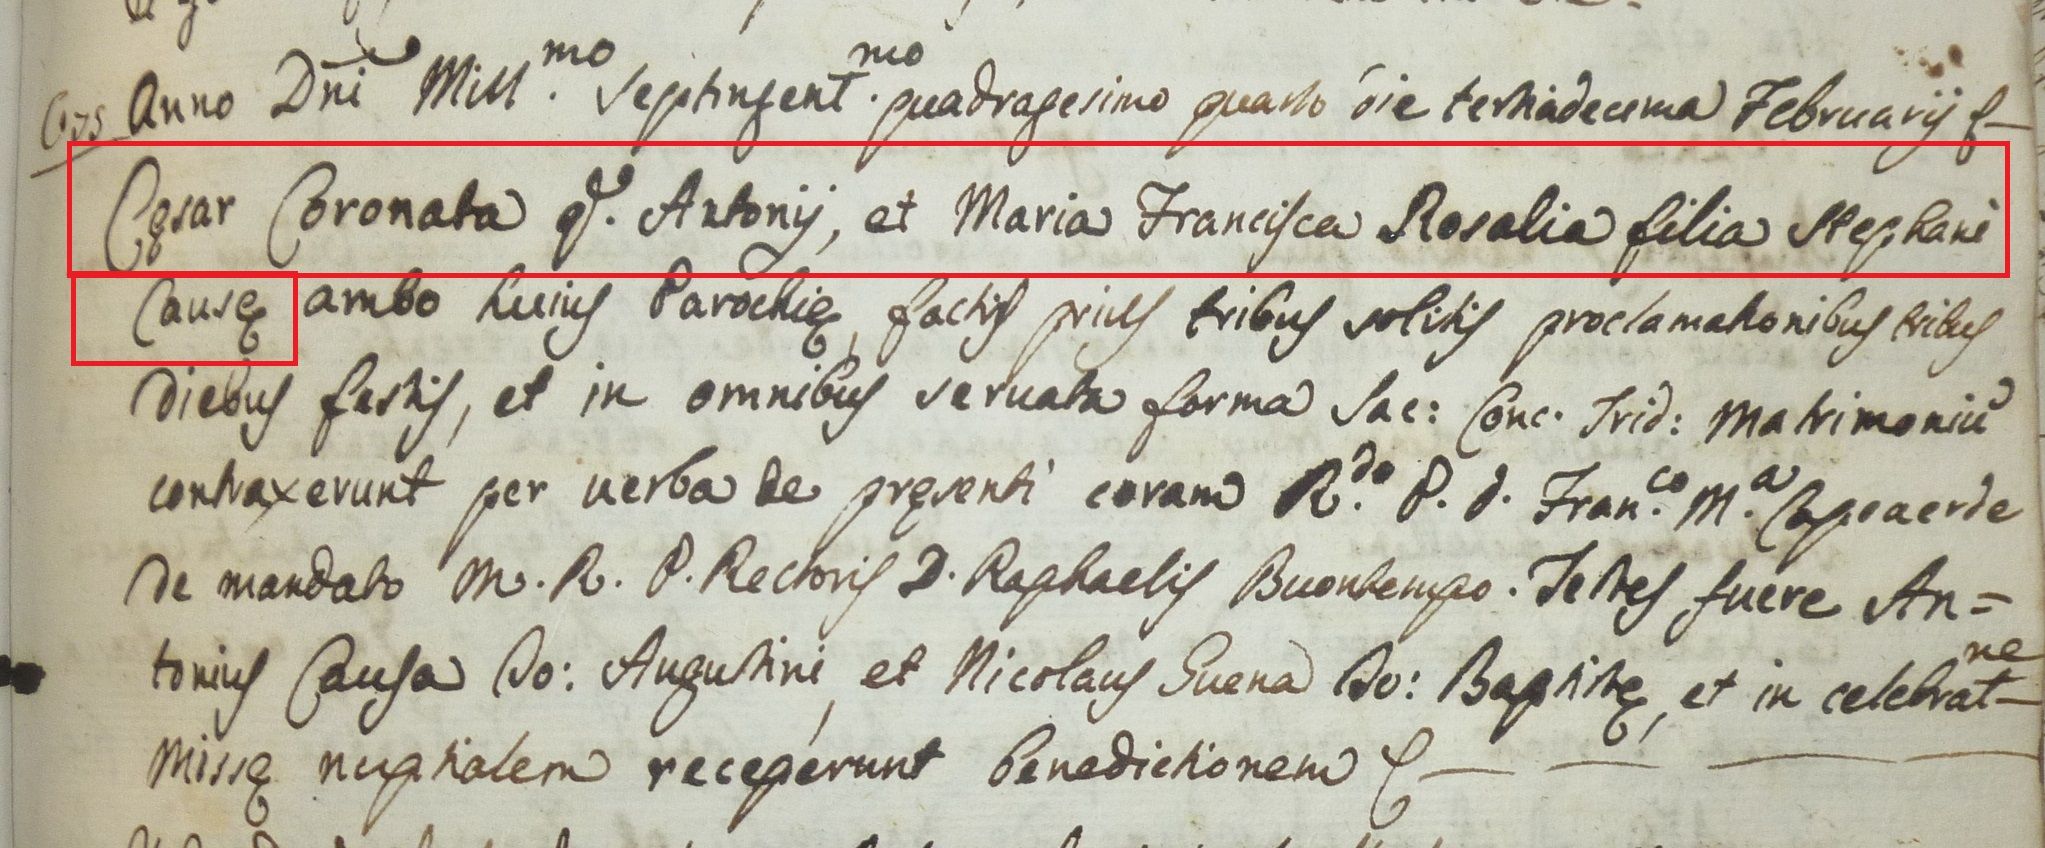 Anno Dni Mill.mo septingent.mo quadragesimo quarto die tertiadecima Februarij
Cęsar Coronata q. Antonij, et Maria Francisca Rosalia filia Stephani
Causę ambo huius Parochię, factis prius tribus solitis proclamationibus tribus
diebus festis, et in omnibus seruata forma Sac: Conc. Trid: Matrimoniū
contraxerunt per uerba de pręsenti coram R.do P. d. Fran.co M.a Capoaerde
de mandato M. R. P. Rectoris D. Raphaelis Buontempo. Testes fuere An=
tonius Causa Do: Augustini, et Nicolaus Guena Do: Baptistę, et in celebrat-ne
Missę nuptialem receperunt benedictionem